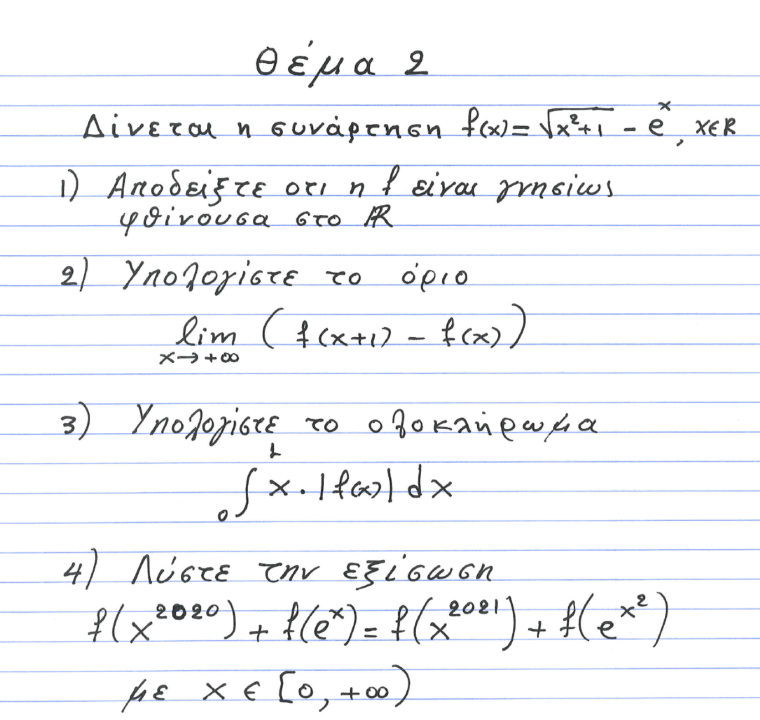 Θέμα 2
Δίνεται η συνάρτηση f(x)=√(x²+1) - eˣ, x∈R
1) Αποδείξτε οτι η f είναι γνησίως
φθίνουσα στο ℝ
2) Υπολογίστε το όριο
lim (f(x+1) - f(x))
x→+∞
3) Υπολογίστε το ολοκλήρωμα
∫₀¹ x·|f(x)| dx
4) Λύστε την εξίσωση
f(x²⁰²⁰) + f(eˣ) = f(x²⁰²¹) + f(e^(x²))
με x ∈ [0, +∞)